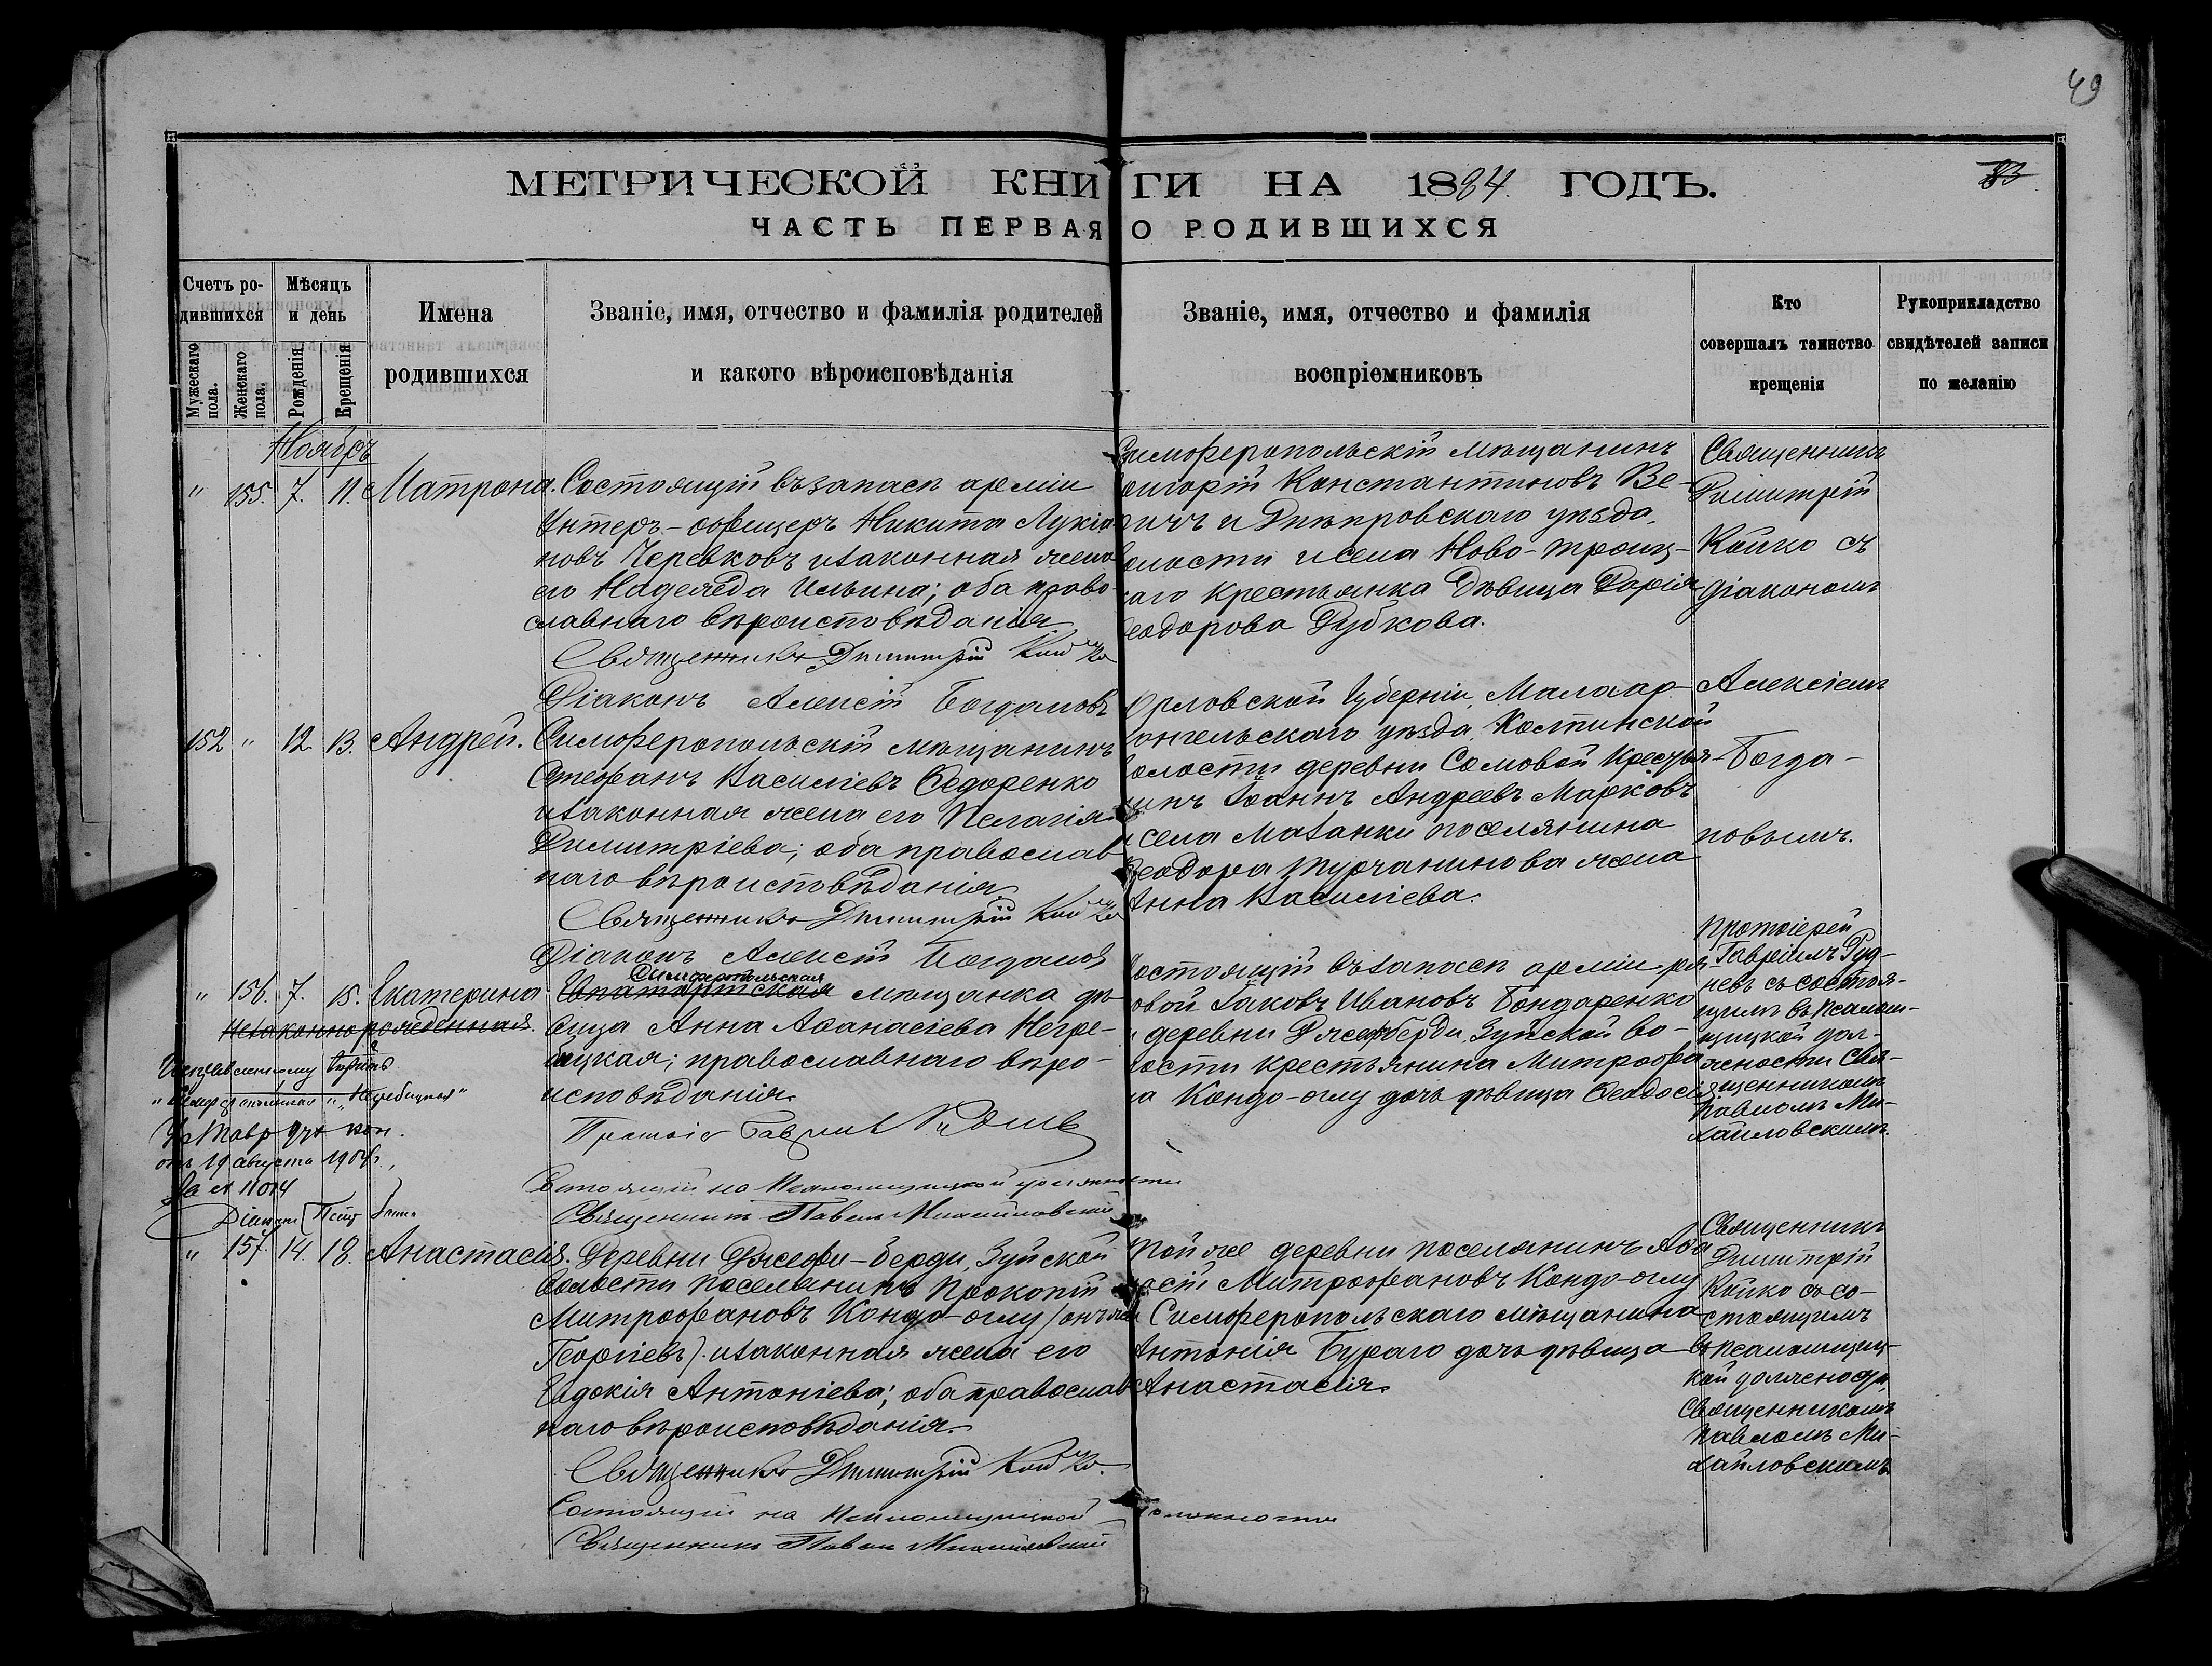 49
МЕТРИЧЕСКОЙ КНИГИ НА 1884 ГОДЪ.
83
ЧАСТЬ ПЕРВАЯ О РОДИВШИХСЯ
Счетъ родившихся
Мужескаго пола.
Женскаго пола.
Мѣсяцъ и день
Рожденія
Крещенія
Имена
родившихся
Званіе, имя, отчество и фамилія родителей
и какого вѣроисповѣданія
Званіе, имя, отчество и фамилія
воспріемниковъ
Кто
совершалъ таинство
крещенія
Рукоприкладство
свидѣтелей записи
по желанію
Ноябрь
" 155. 7. 11. Матрона.
Состоящій въ запасѣ арміи
Унтеръ-офицеръ Никита Лукіа-
новъ Черевковъ и законная жена
его Надежда Ильина; оба право-
славнаго вѣроисповѣданія
Священникъ Димитрій Койко
Діаконъ Алексій Богдановъ
Симферопольскій мѣщанинъ
Григорій Константиновъ Ве-
личъ и Днѣпровскаго уѣзда,
волости и села Ново-Троиц-
каго крестьянка дѣвица Дарія
Ѳеодорова Дубкова.
Священникъ
Димитрій
Койко съ
діакономъ
Алексіемъ
Богда-
новымъ.
152 " 12. 13. Андрей.
Симферопольскій мѣщанинъ
Стефанъ Василіевъ Ѳедоренко
и законная жена его Пелагія
Димитріева; оба православ-
наго вѣроисповѣданія
Священникъ Димитрій Койко
Діаконъ Алексій Богдановъ
Орловской Губерніи, Малоар-
хангельскаго уѣзда Костинской
волости деревни Сомовой Крестья-
нинъ Іоаннъ Андреевъ Марковъ
и села Мазанки поселянина
Ѳеодора Турчанинова жена
Анна Василіева.
" 156. 7. 15. Екатерина
Незаконнорожденная.
Симферопольская
Евпаторійская мѣщанка дѣ-
вица Анна Аѳанасіева Негре-
бицкая; православнаго вѣро-
исповѣданія.
Протоіе Гавріилъ Рудневъ
Состоящій на Псаломщицкой должности
Священникъ Павелъ Михайловскій
Состоящій въ запасѣ арміи ря-
довой Іаковъ Ивановъ Бондаренко
и деревни Джефберди, Зуйской во-
лости крестьянина Митрофа-
на Кондо-оглу дочь дѣвица Ѳеодосія
Протоіерей
Гавріилъ Руд-
невъ съ состоя-
щимъ въ псалом-
щицкой дол-
жности Свя-
щенникомъ
Павломъ Ми-
хайловскимъ.
Исправленному вѣрить
"Симферопольская" "Негребицкая"
Ук. Тавр. дух. кон.
отъ 19 августа 1904 г.,
за № 11014
Діаконъ
" 157. 14. 18. Анастасія.
Деревни Джефи-берди, Зуйской
волости поселянинъ Прокопій
Митрофановъ Кондо-оглу (онъ же
Георгіевъ) и законная жена его
Евдокія Антоніева; оба православ-
наго вѣроисповѣданія.
Священникъ Димитрій Койко.
Состоящій на Псаломщицкой должности
Священникъ Павелъ Михайловскій
Той же деревни поселянинъ Аѳа-
насій Митрофановъ Кондо-оглу
и Симферопольскаго мѣщанина
Антонія Бураго дочь дѣвица
Анастасія.
Священникъ
Димитрій
Койко съ со-
стоящимъ
въ псаломщиц-
кой должности,
Священникомъ
Павломъ Ми-
хайловскимъ.